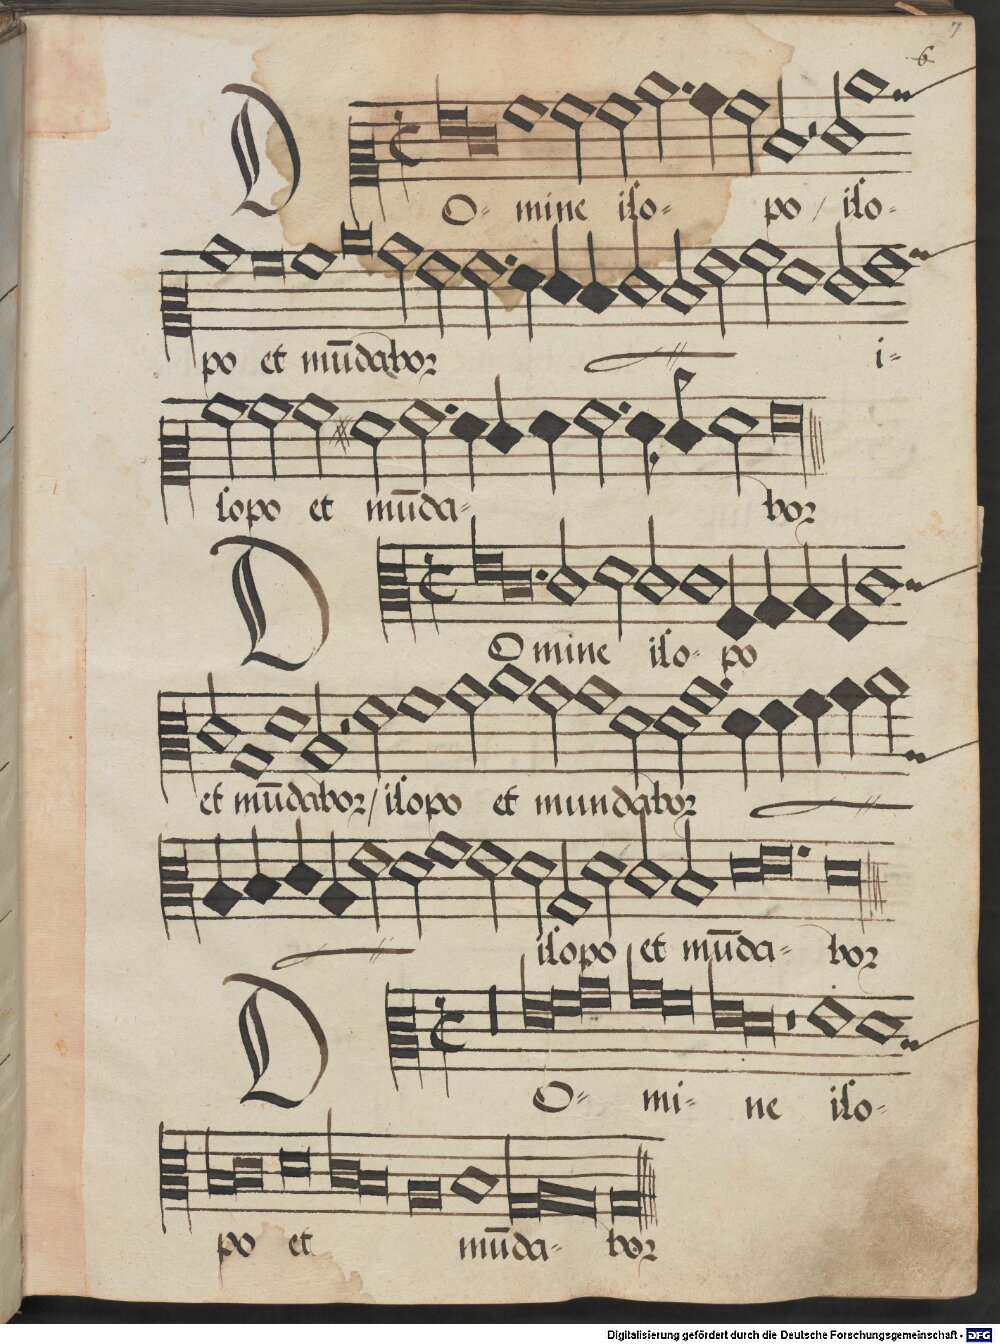 7
6
DO- mine iso- po / iso-
po et mu̅dabor i-
sopo et mu̅da- bor
DOmine iso- po
et mu̅dabor / isopo et mundabor
isopo et mu̅da- bor
DO- mi- ne iso-
po et mu̅da- bor
Digitalisierung gefördert durch die Deutsche Forschungsgemeinschaft - DFG